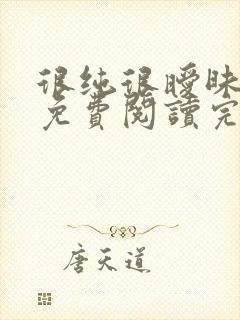 很纯很曖昧
免費閱讀完
唐天道